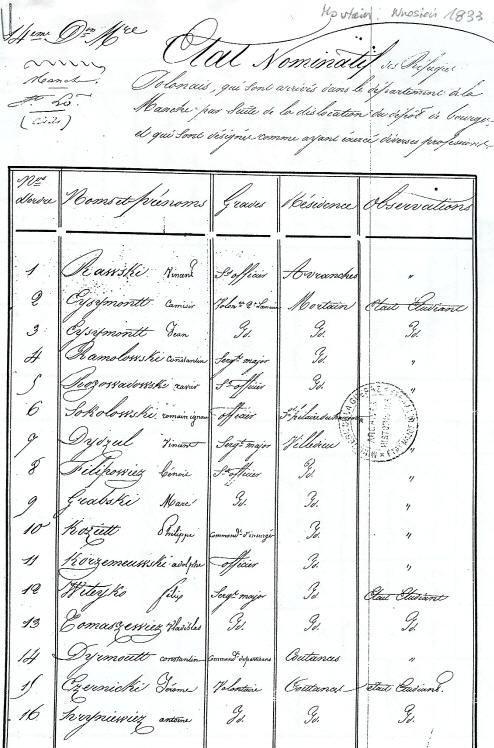 14eme Don Mre
Mortain 1833
Etat Nominatif des Réfugiés
Manche
Polonais, qui sont arrivés dans le département de la
Manche par suite de la dislocation du dépôt de bourges
et qui sont désignés comme ayant exercé diverses professions
Nos d'ordre Noms et prénoms Grades Résidence Observations
1 Rawski Vincent S. officier Avranches "
2 Cysymontt Casimir Mortain Etait Etudiant
3 Cysymontt Jean Id. Id. Id.
4 Ramolowski Constantin Sergt major Id. "
5 Rozowadowski xavier S. officier Id. "
6 Sokolowski romain ignace officier St hilaire du harcouet
7 Dydzul Vincent Sergt major Villedieu "
8 Filipowiez Benoit S. officier Id. "
9 Grabski Marc Id. Id. "
10 Kozett Philippe command. d'insurgés Id. "
11 Korzemeuwski adolphe officier Id. "
12 Witeyko felix Sergt major Id. Etait Etudiant
13 Tomaszewiez Vladislas Id. Id. Id.
14 Dyrmontt constantin command. de partisans Coutances "
15 Czernicki Jérome Volontaire Coutances etait Etudiant.
16 antoine Id. Id. Id.